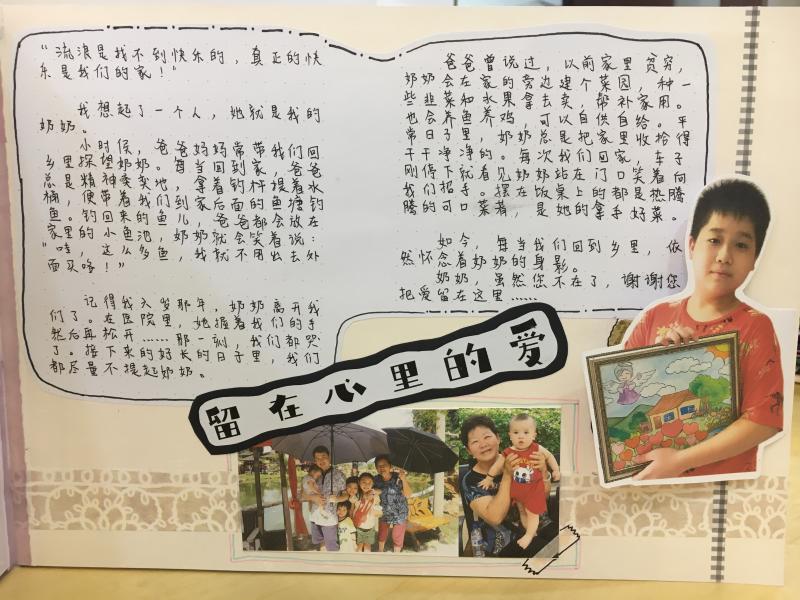 “流浪是找不到快乐的，真正的快
乐是我们的家！”
我想起了一个人，她就是我的
奶奶。
小时候，爸爸妈妈常带我们回
乡里探望奶奶。每当回到家，爸爸
总是精神奕奕地，拿着钓杆提着水
桶，便带着我们到家后面的鱼塘钓
鱼。钓回来的鱼儿，爸爸都会放在
家里的小鱼池，奶奶就会笑着说：
“哇，这么多鱼，我就不用出去外
面买咯！”
记得我八岁那年，奶奶离开我
们了。在医院里，她握着我们的手
然后再松开……那一刻，我们都哭
了。接下来的好长的日子里，我们
都尽量不提起奶奶。
爸爸曾说过，以前家里贫穷，
奶奶会在家的旁边建个菜园，种一
些韭菜和水果拿去卖，帮补家用。
也会养鱼养鸡，可以自供自给。平
常日子里，奶奶总是把家里收拾得
干干净净的。每次我们回家，车子
刚停下就看见奶奶站在门口笑着向
我们招手。摆在饭桌上的都是热腾
腾的可口菜肴，是她的拿手好菜。
如今，每当我们回到乡里，依
然怀念着奶奶的身影。
奶奶，虽然您不在了，谢谢您
把爱留在这里……
留在心里的爱